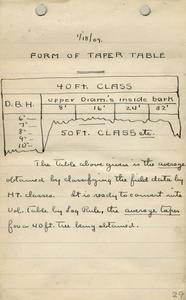 1/18/09.
FORM OF TAPER TABLE
40 FT. CLASS
D.B.H. upper Diam's inside bark
8' 16' 24' 32'
6"—
7"—
8"—
9"—
10"—
50 FT. CLASS etc.
The table above given is the average
obtained by classifying the field data by
Ht. classes. It is ready to convert into
Vol. table by Log Rule, the average taper
for a 40 ft. tree being obtained.
29